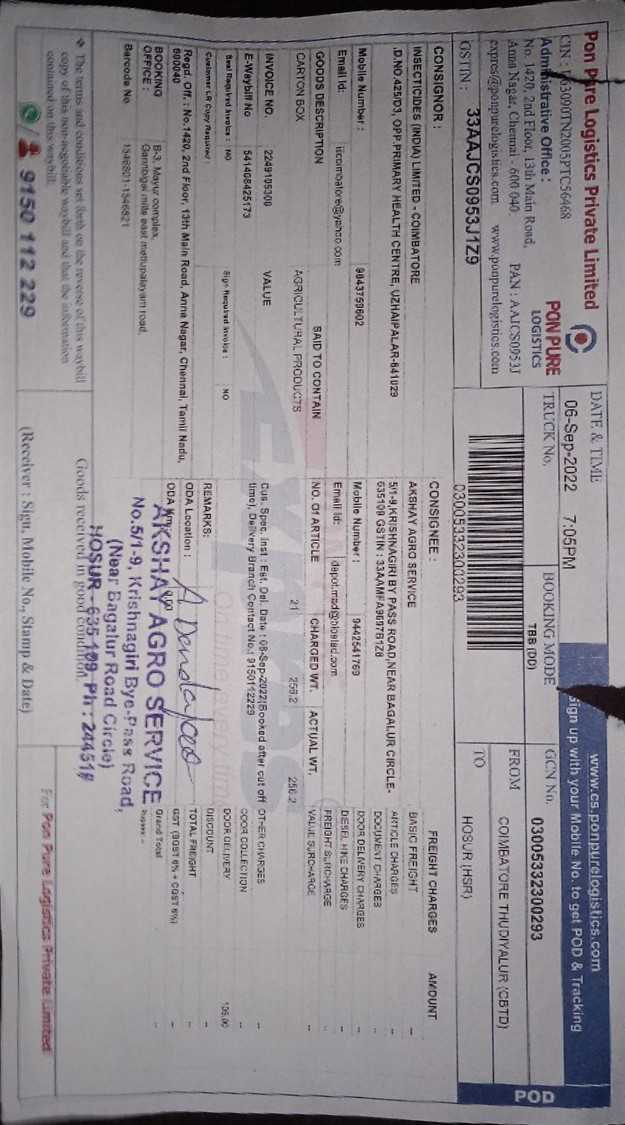 Pon Pure Logistics Private Limited
Administrative Office :
No. 1420, 2nd Floor, 13th Main Road,
Anna Nagar, Chennai - 600 040
PAN : AAJCS0953J
expres@ponpurelogistics.com www.ponpurelogistics.com
GSTIN : 33AAJCS0953J1Z9
PON PURE
LOGISTICS
DATE & TIME
06-Sep-2022 7:05PM
TRUCK No.
BOOKING MODE
TBB (DD)
03005332300293
www.cs.ponpurelogistics.com
Sign up with your Mobile No. to get POD & Tracking
GCN No. 03005332300293
FROM COIMBATORE THUDIYALUR (CBTD)
TO HOSUR (HSR)
POD
CONSIGNOR :
INSECTICIDES (INDIA) LIMITED - COIMBATORE
,D.NO.425/D3, OPP.PRIMARY HEALTH CENTRE, UZHAIPALAR-641029
Mobile Number : 9843759602
Email Id: iilcoimbatore@yahoo.com
CONSIGNEE :
AKSHAY AGRO SERVICE
5/1-9,KRISHNAGIRI BY PASS ROAD,NEAR BAGALUR CIRCLE-
635109 GSTIN : 33AAMFA9697B1Z8
Mobile Number : 9442541769
Email Id:
GOODS DESCRIPTION SAID TO CONTAIN NO. Of ARTICLE CHARGED WT. ACTUAL WT.
CARTON BOX AGRICULTURAL PRODUCTS 21 256.2 256.2
INVOICE NO. VALUE
2249105300
E-Waybill No 541408425173
Seal Required Invoice : NO Sign Required Invoice : NO
Customer LR Copy Required :
Cus. Spec. Inst : Est. Del. Date : 08-Sep-2022(Booked after cut off
time), Delivery Branch Contact No.: 9150112229
REMARKS:
Regd. Off. : No.1420, 2nd Floor, 13th Main Road, Anna Nagar, Chennai, Tamil Nadu,
600040
ODA Location :
BOOKING OFFICE : B-3, Mayur complex,
Gambogal mills east mettupalayam road,
Barcode No 1546801-1546821
FREIGHT CHARGES AMOUNT
BASIC FREIGHT --
ARTICLE CHARGES --
DOCUMENT CHARGES --
DOOR DELIVERY CHARGES --
DIESEL HIKE CHARGES --
FREIGHT SURCHARGE --
VALUE SURCHARGE --
OTHER CHARGES --
DOOR COLLECTION --
DOOR DELIVERY 105.00
DISCOUNT --
TOTAL FREIGHT --
GST (SGST 6% + CGST 6%) --
Grand Total
AKSHAY AGRO SERVICE
No.5/1-9, Krishnagiri Bye-Pass Road,
(Near Bagalur Road Circle)
HOSUR - 635 109. Ph : 24451
❖ The terms and conditions set forth on the reverse of this waybill
copy of this non-negotiable waybill and that the information
contained on this waybill.
9150 112 229
Goods received in good condition
(Receiver : Sign, Mobile No., Stamp & Date)
For Pon Pure Logistics Private Limited